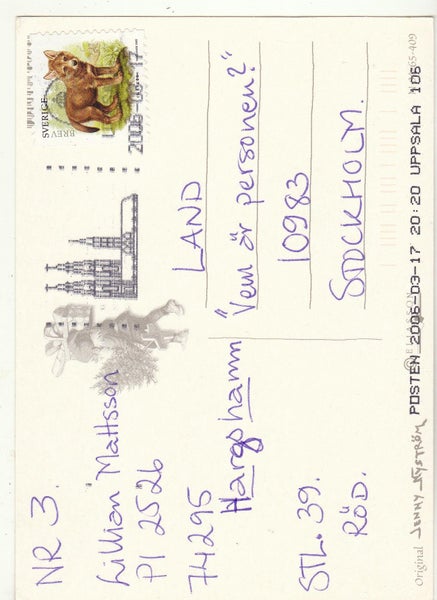 NR 3.
Lillian Mattsson
Pl 2526
74295
Hargshamn
STL. 39.
RÖD.
SVERIGE
BREV
LAND
"Vem är personen?"
10983
STOCKHOLM.
Original JENNY NYSTRÖM
POSTEN 2006-03-17 20:20 UPPSALA 106